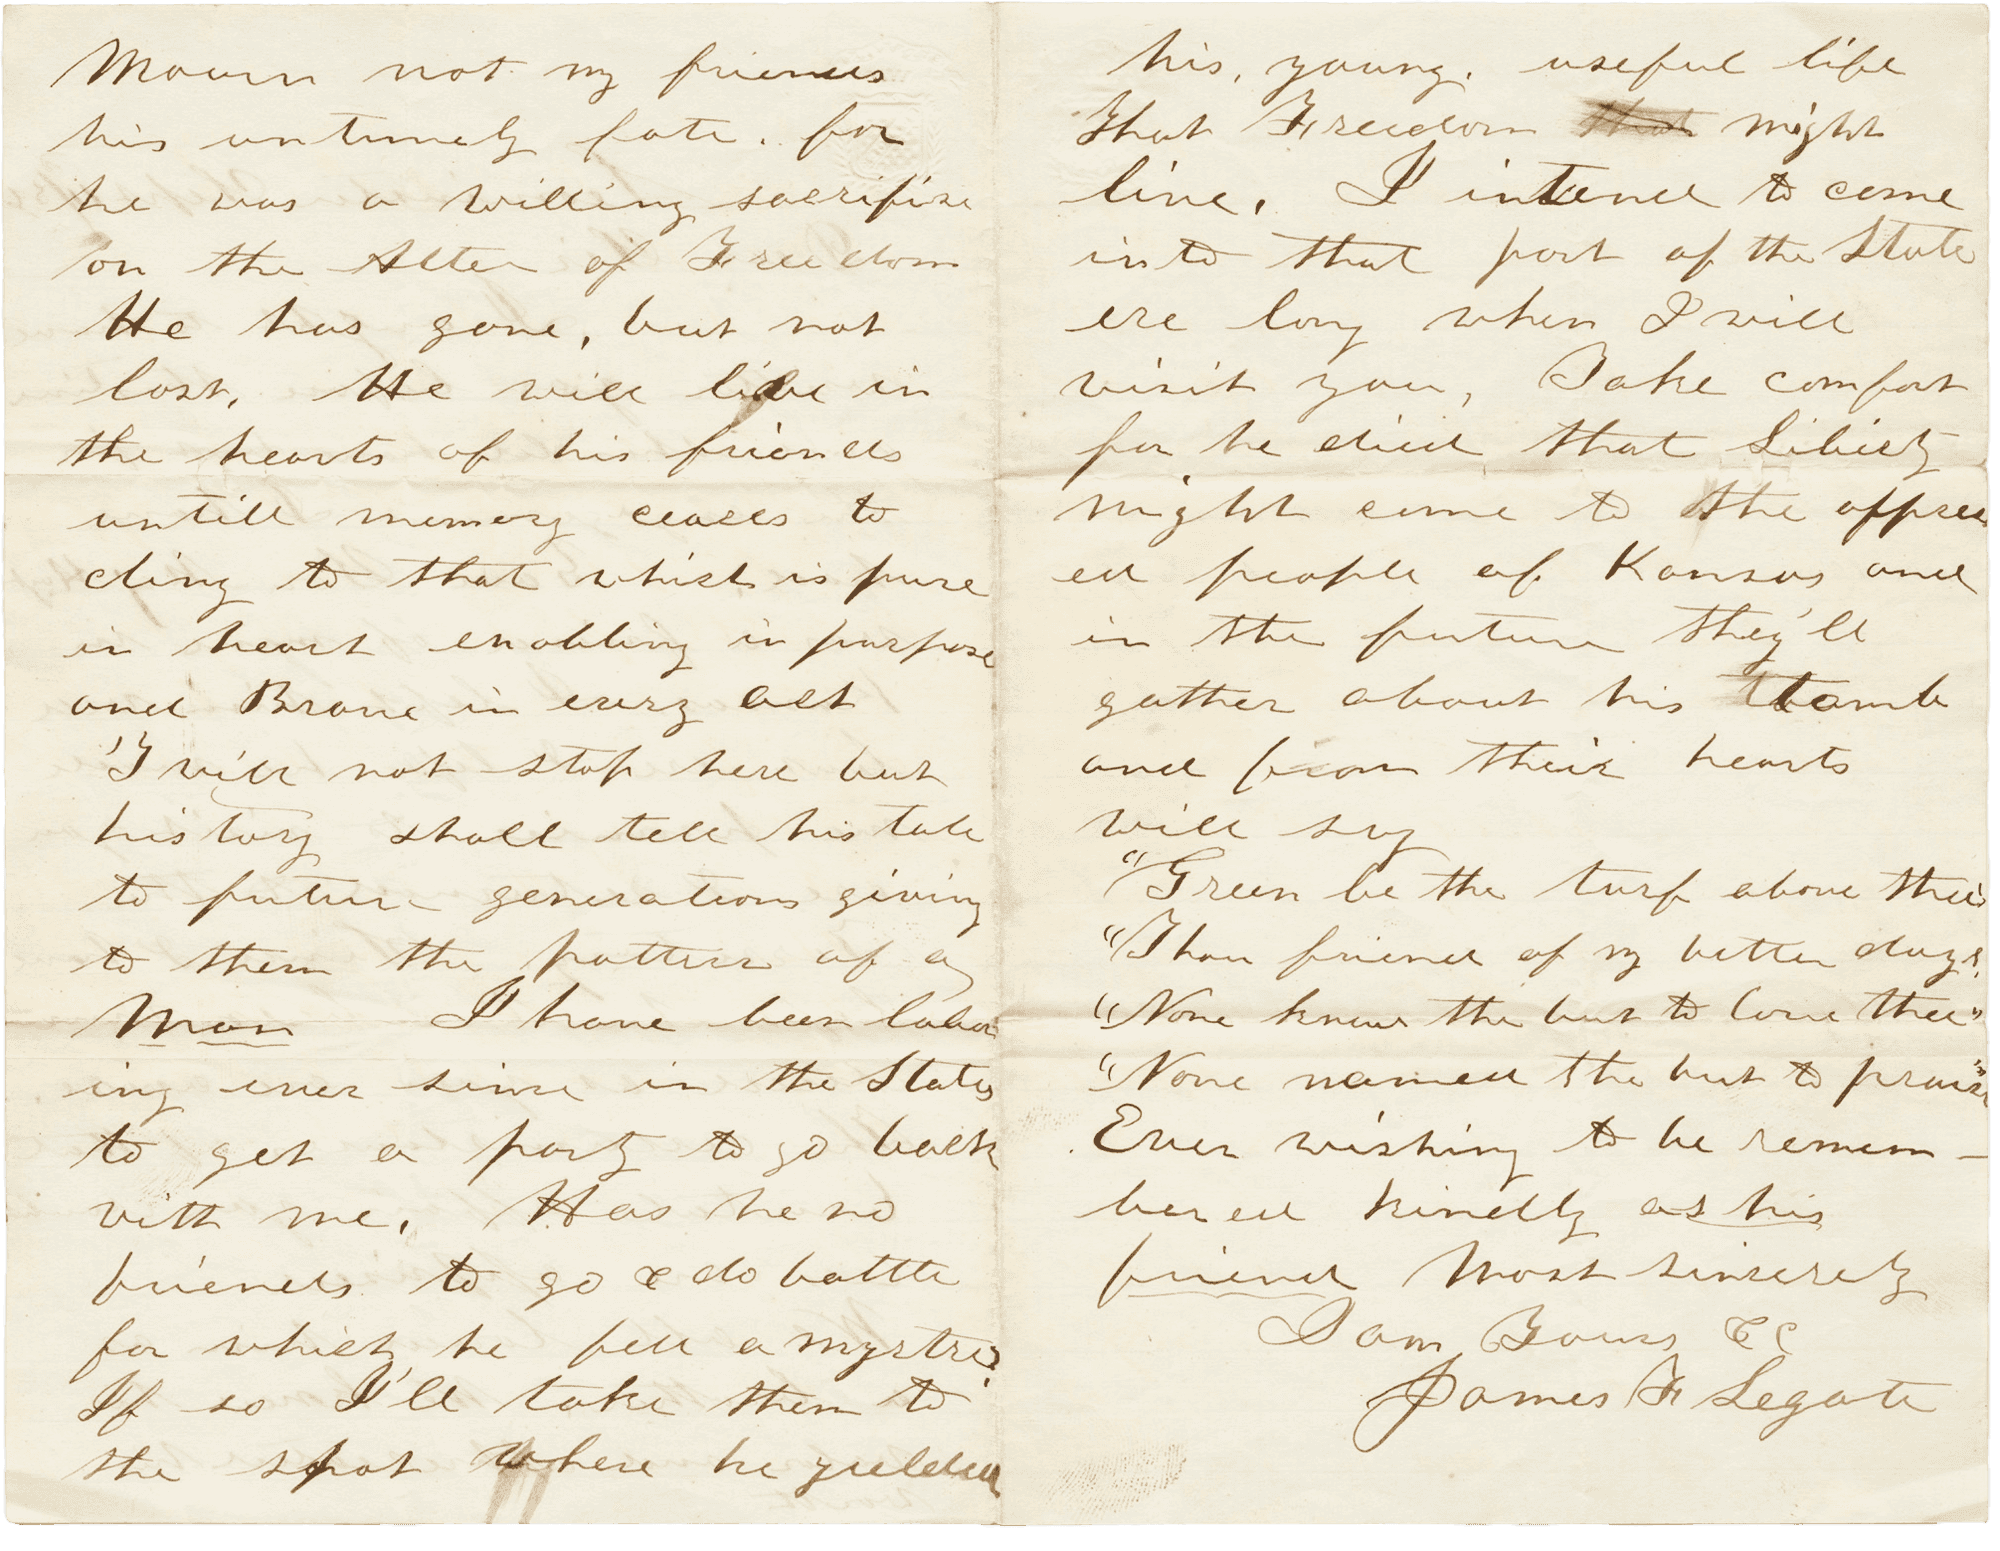 Mourn not my friends
his untimely fate. for
he was a willing sacrifise
on the Alter of Freedom
He has gone, but not
lost. He will live in
the hearts of his friends
untill memory ceases to
cling to that which is pure
in heart enobling in purpose
and Brave in every act
I will not stop here but
history shall tell his tale
to future generations giving
to them the pattern of a
Man I have been labor
ing ever since in the States
to get a party to go back
with me. Has he no
friends to go & do battle
for which he fell a mystre?
If so I'll take them to
the spot where he yielded
his, young, useful life
That Freedom that might
live. I intend to come
into that part of the State
ere long when I will
visit you, Take comfort
for he died that Liberty
might come to the oppress
ed people of Kansas and
in the future they'll
gather about his tomb
and from their hearts
will say
"Green be the turf above thee
"Thou friend of my better days,
"None knew the but to love thee"
"None named the but to praise"
Ever wishing to be remem-
bered kindly as his
friend Most sincerely
I am Yours &c
James F Legate